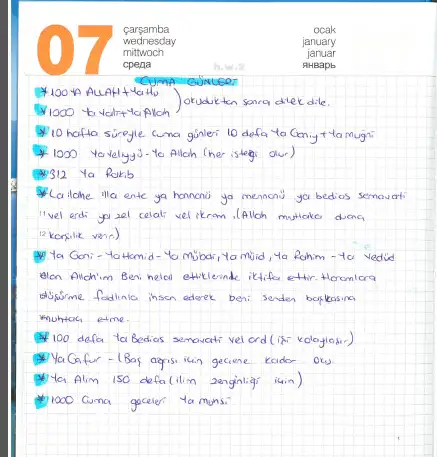 07
çarşamba
wednesday
mittwoch
среда
ocak
january
januar
январь
h.w.z
CUMA GÜNLERİ
* 100 YA ALLAH + Ya Hu
* 1000 Ya Vali + Ya Allah
) okuduktan sonra dilek dile.
* 10 hafta süreyle cuma günleri 10 defa Ya Ganiy + Ya mugni
* 1000 Ya Veliyyü - Ya Allah (her isteği olur)
* 312 Ya Rakib
* La ilahe illa ente ya hannanü ya mennanü ya bedias semavati
11 vel erdi ya zel celali vel ikram. (Allah mutlaka duana
12 karşılık verir)
* Ya Gani - Ya Hamid - Ya Mübdi, Ya Müid, Ya Rahim - Ya Vedüd
olan Allah'ım Beni helal ettiklerinde iktifa ettir. Haramlara
düşürme fadlınla ihsan ederek beni senden başkasına
muhtac etme.
* 100 defa Ya Bedias semavati vel ard (işi kolaylaşır)
* Ya Gafur - (Baş ağrısı için geçene kadar oku.
* Ya Alim 150 defa (ilim zenginliği için)
* 1000 Cuma geceleri Ya muhsi